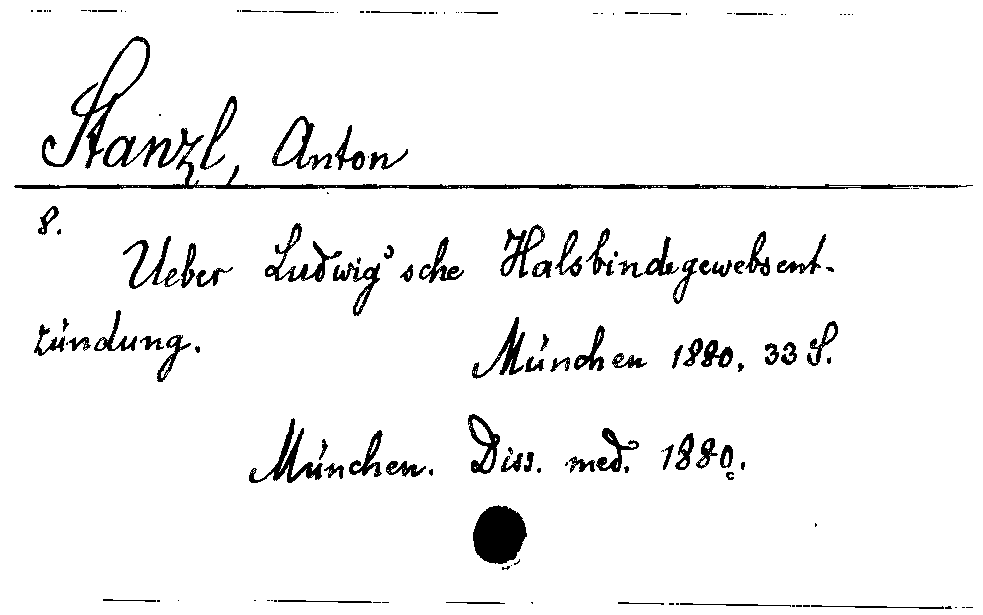 Stanzl, Anton
8.
Ueber Ludwig'sche Halsbindegewebsent-
zündung.
München 1880. 33 S.
München. Diss. med. 1880.